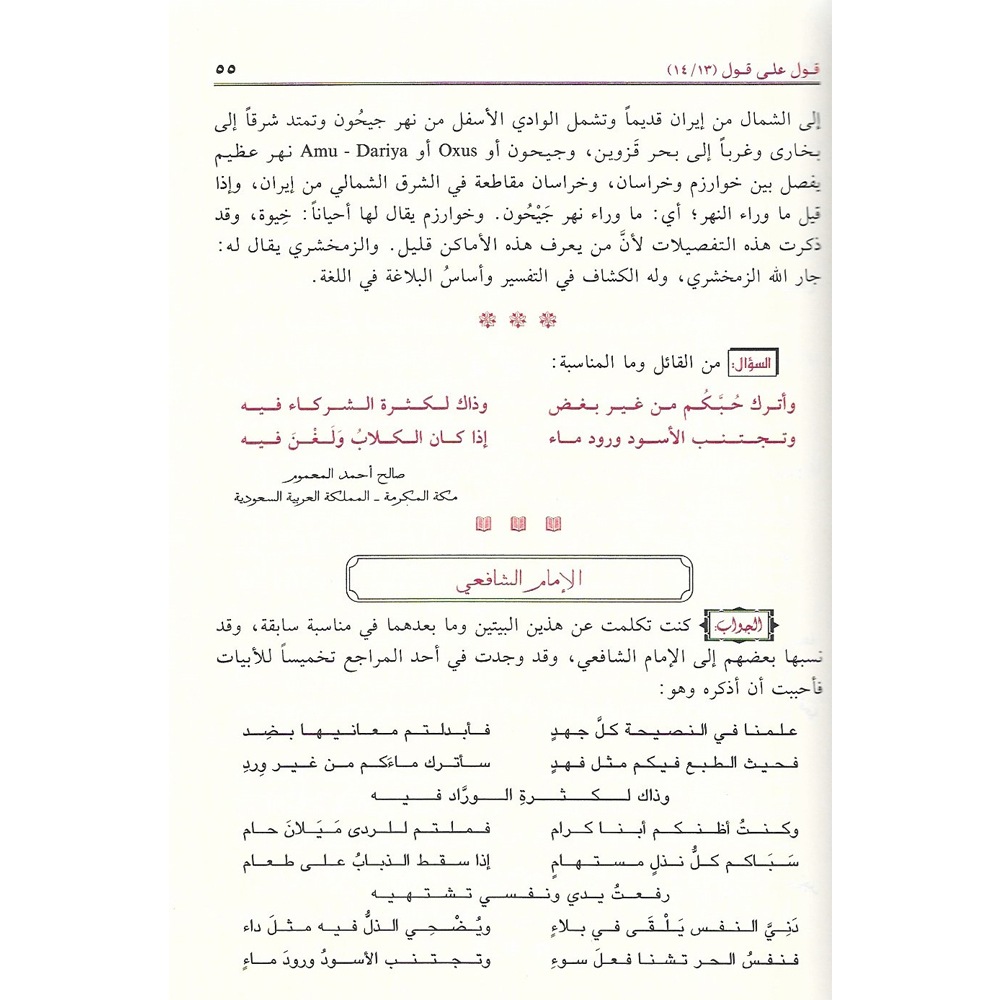 قول على قول (١٣/ ١٤) ٥٥
إلى الشمال من إيران قديماً وتشمل الوادي الأسفل من نهر جيحُون وتمتد شرقاً إلى
بخارى وغرباً إلى بحر قَزوين، وجيحون أو Oxus أو Amu - Dariya نهر عظيم
يفصل بين خوارزم وخراسان، وخراسان مقاطعة في الشرق الشمالي من إيران، وإذا
قيل ما وراء النهر؛ أي: ما وراء نهر جَيْحُون. وخوارزم يقال لها أحياناً: خِيوة، وقد
ذكرت هذه التفصيلات لأنَّ من يعرف هذه الأماكن قليل. والزمخشري يقال له:
جار الله الزمخشري، وله الكشاف في التفسير وأساسُ البلاغة في اللغة.
السؤال: من القائل وما المناسبة:
وأترك حُبَّكُم من غير بغض وذاك لكثرة الشركاء فيه
وتجتنب الأسود ورود ماء إذا كان الكلابُ وَلَغْنَ فيه
صالح أحمد المعمور
مكة المكرمة - المملكة العربية السعودية
الإمام الشافعي
الجواب: كنت تكلمت عن هذين البيتين وما بعدهما في مناسبة سابقة، وقد
نسبها بعضهم إلى الإمام الشافعي، وقد وجدت في أحد المراجع تخميساً للأبيات
فأحببت أن أذكره وهو:
علمنا في النصيحة كلَّ جهدٍ فأبدلتم معانيها بضِد
فحيث الطبع فيكم مثل فهدٍ سأترك ماءَكم من غير وِردِ
وذاك لكثرةِ الورَّاد فيه
وكنتُ أظنكم أبنا كرام فملتم للردى مَيَلانَ حام
سَبَاكم كلُّ نذلٍ مستهامٍ إذا سقط الذبابُ على طعام
رفعتُ يدي ونفسي تشتهيه
دَنِيَّ النفس يَلْقَى في بلاءٍ ويُضْحِي الذلُّ فيه مثلَ داء
فنفسُ الحر تشنا فعلَ سوءِ وتجتنب الأسودُ ورودَ ماءٍ